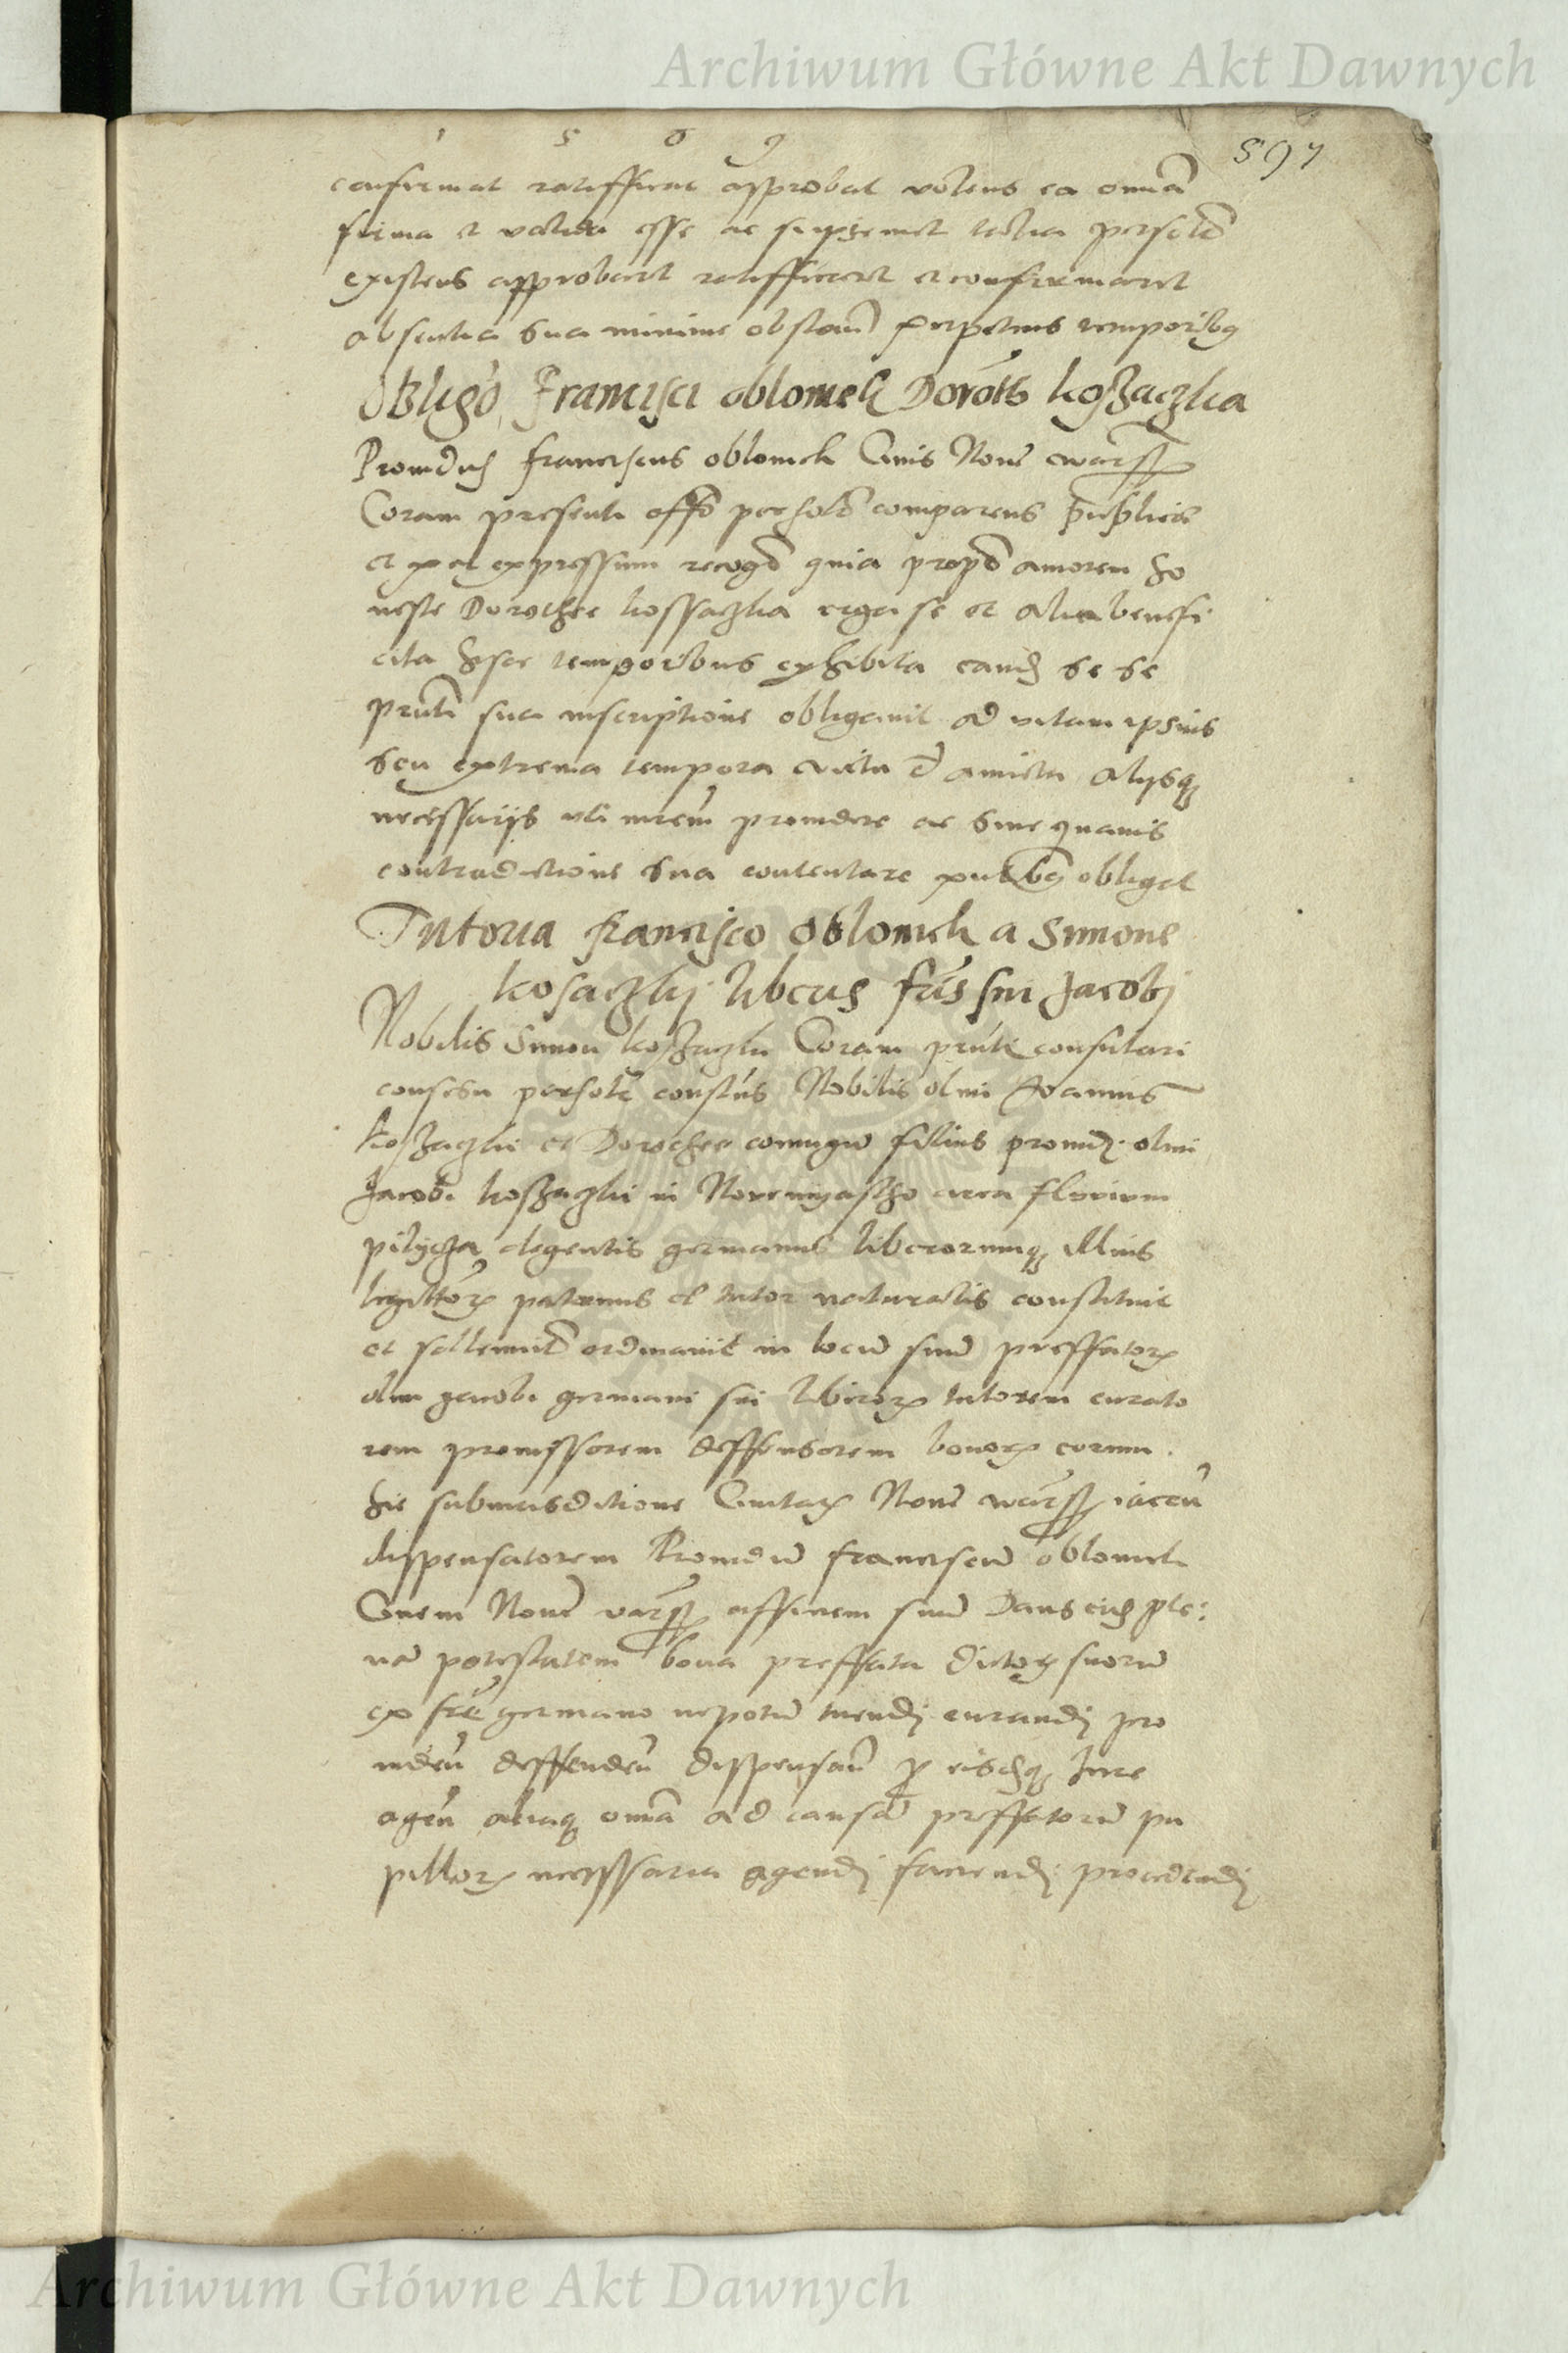 Archiwum Główne Akt Dawnych
1 5 6 9
597
confirmat ratifficat approbat volens ea omnia
firma et valida esse ac si ipsemet
existens approbaret ratifficaret et confirmaret
absentia sua minime obstan perpetuis temporibq
Obligo Francisci oblomek Doroths koszaczka
Providus franciscus oblomek Civis Nove warss
Coram presenti offo persolr comparens publice
et per expressum recogt quia propt amorem ho
neste Dorothee kossaczka erga se et alia benefi
cita hisce temporibus exhibita eand se se
prnti sua inscriptione obligavit ad vitam ipsius
seu extrema tempora victu et amictu alysq
necessarijs providere ac sine quavis
contradictione sua contentare prntibq obligat
Tutoria francisco oblomek a Simone
kosaczky liberis fris sui Jacobj
Nobilis Simon koszaczki Coram prnti consulari
consesu persolr constus Nobilis olim Joannis
koszaczki et Dorothee coniugu filius provid olim
Jacobi koszaczki in Novemyastho circa fluvium
pilycza degentis germanus liberorumq illius
legittor patruus et tutor naturalis constituit
et sollemnit ordinavit in locu suu preffator
olim Jacobi germani sui liberor tutorem curato
rem provissorem deffensorem bonor eorum
hic sub iurisditione Civitatis Nove warss iacen
dispensatorem Providu franciscu oblomek
Civem Nove varss affinem suu Dans eid ple:
na potestatem bona preffata dictor suoru
ex fre germano nepotu tuendj curandj pro
viden deffenden dispensan p eisdq Jure
agen aliaq omnia ad causa preffatoru pu
pillor necessaria agendj faciendj procedendj
Archiwum Główne Akt Dawnych